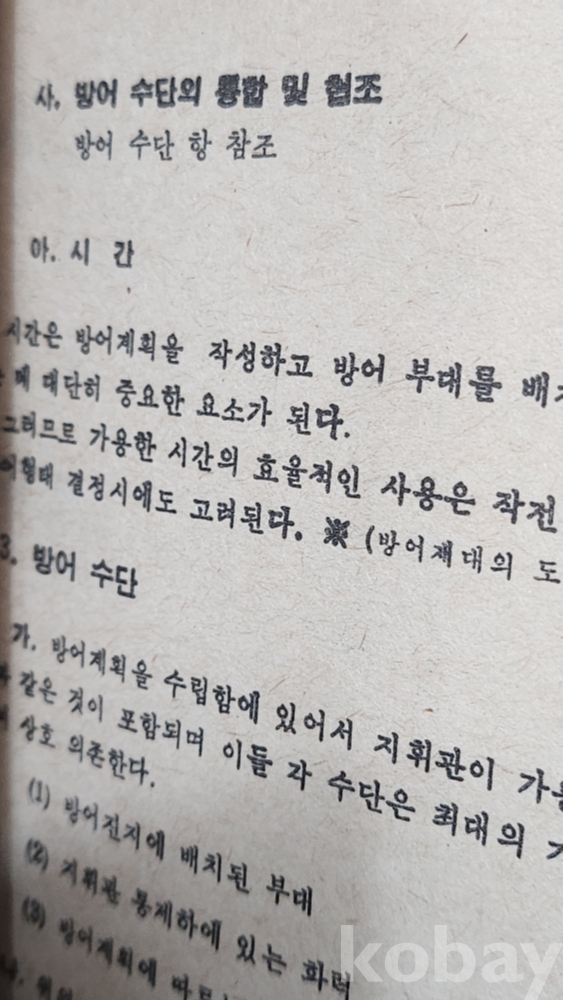 사. 방어 수단의 통합 및 협조
방어 수단 항 참조
아. 시 간
시간은 방어계획을 작성하고 방어 부대를 배
데 대단히 중요한 요소가 된다.
그러므로 가용한 시간의 효율적인 사용은 작전
어형태 결정시에도 고려된다. ※ (방어제대의 도
3. 방어 수단
가. 방어계획을 수립함에 있어서 지휘관이 가용
같은 것이 포함되며 이들 각 수단은 최대의
상호 의존한다.
(1) 방어진지에 배치된 부대
(2) 지휘관 통제하에 있는 화력
(3) 방어계획에 따
kobay